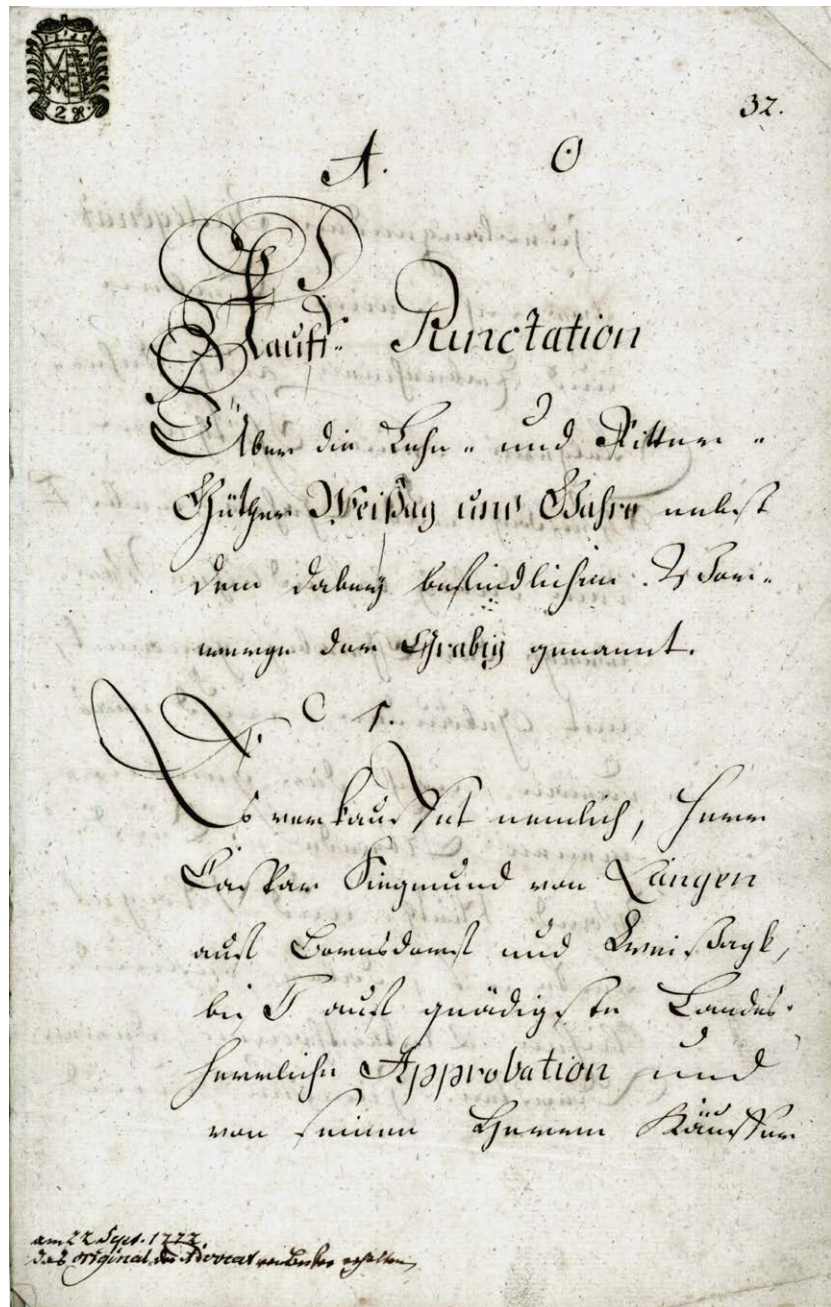 2 gr.
32.
A. O
Kauff- Punctation
Über die Lehn- und Ritter-
Güther Weißag und Gahro nebst
dem dabey befindlichen Vor-
werge der Grabig genannt.
1.
Es verkauffet nemlich, Herr
Caspar Siegmund von Langen
auf Bornsdorf und Weißagk,
biß auf gnädigste Landes-
herrliche Approbation und
von seinen Herrn Käuffer
am 22 Sept. 1777.
das original Advocat erhalten